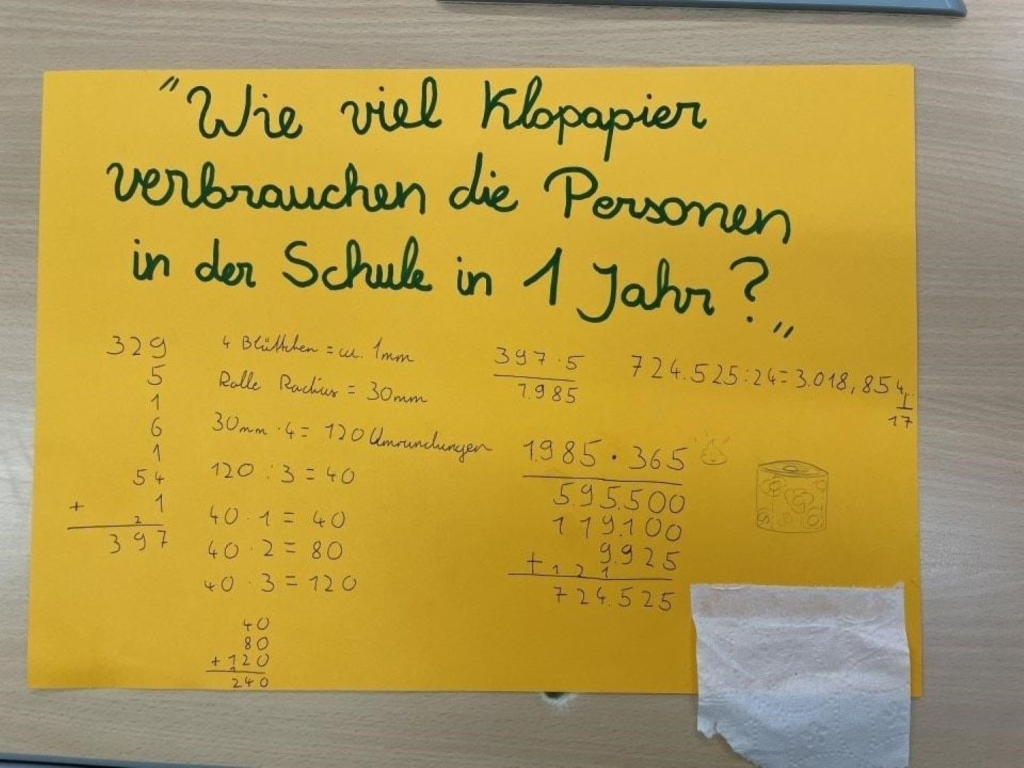 "Wie viel Klopapier
verbrauchen die Personen
in der Schule in 1 Jahr?"
329
5
1
6
1
54
+ 1
2
397
4 Blättchen = ca. 1mm
Rolle Radius = 30mm
30mm · 4 = 120 Umrundungen
120 : 3 = 40
40 · 1 = 40
40 · 2 = 80
40 · 3 = 120
40
80
+ 120
1
240
397 · 5
1.985
1.985 · 365
595.500
119.100
9.925
+ 1 2 1
724.525
724.525 : 24 = 3.018,854
17